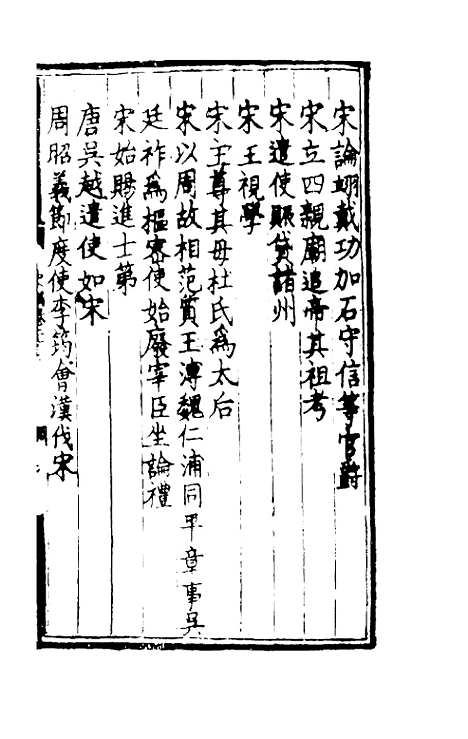 宋論翊戴功加石守信等官爵
宋立四親廟追帝其祖考
宋遣使賑貸諸州
宋王視學
宋主尊其母杜氏爲太后
宋以周故相范質王溥魏仁浦同平章事吳
廷祚爲樞密使始廢宰臣坐論禮
宋始賜進士第
唐吳越遣使如宋
周昭義節度使李筠會漢伐宋